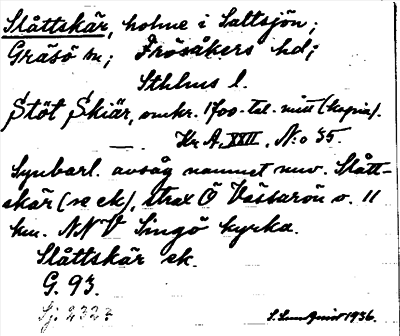 Slåttskär, holme i Saltsjön;
Gräsö sn; Frösåkers hd;
Sthlms l.
Stöt Skiär, omkr. 1700-tal. mitt (kopia).
Kr. A. XXII. N:o 35.
Synbarl. avsåg namnet nuv. Slått-
skär (se ek), strax Ö Vässarön o. 11
km. NNV Singö kyrka.
Slåttskär ek.
G. 93.
Sj. 2323
1936.